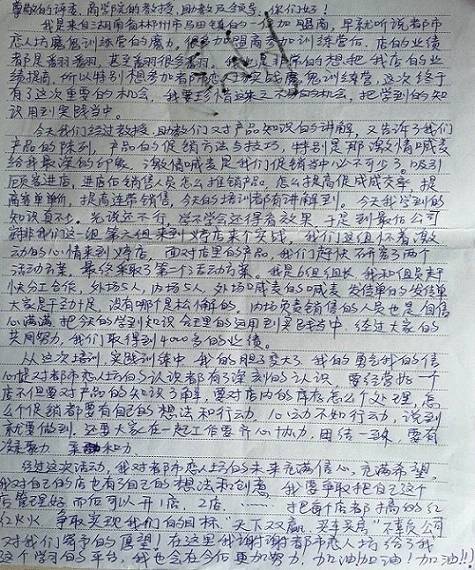 尊敬的评委，商学院的教授，助教及领导，你们好！
我是来自湖南省郴州市马田镇的一位加盟商，早就听说都市
恋人坊魔鬼训练营的魔力，很多加盟商参加训练营后，店的业绩
都是翻翻，甚至翻很多翻，是非常的想把我店的业
绩提高，所以特别想参加都市恋人坊实战魔鬼训练营，这次终于
有了这次重要的机会，我要珍惜这来之不易的机会，把学到的知
识用到实践当中。
今天我们经过教授，助教们又对产品知识的讲解，又告诉了我们
产品的陈列，产品的促销方法与技巧，特别是那激情喊麦
给我最深的印象，激情喊麦是我们促销当中必不可少了。吸引
顾客进店，进店后销售人员怎么推销产品，怎么提高促成成交率，提
高客单价，提高连带销售，今天的培训都有讲解到，今天我学到的
知识真不少。光说还不行，学不学会还得看效果，于是到最后公司
安排我们这一组第六组来到店来个实战，我们这组怀着激
动的心情来到店，面对店里的产品，我们赶快不开会了两个
活动方案，最终采取了第一个活动方案。我是6组组长，我和组员赶
快分工合作，外场5人，内场5人，外场喊麦的喊麦，发传单的发传单
大家是干劲十足，没有哪个是松懈的，内场负责销售的人员也是自信
心满满，把今天的学到知识全里的运用到实践当中，经过大家的
共同努力，我们取得到4000多的业绩。
从这次培训，实践训练中，我的胆子变大了，我的勇气我的信
心提对都市恋人坊的认识都有了深刻的认识，要经营好一个
店不但要对产品的知识了解，要对店内的库存怎么个处理，怎
么个促销都要有自己的想法和行动，心动不如行动，说到
就要做到，还要大家在一起工作要齐心协力，团结一致，要有
凝聚力 亲和力。
经过这次活动，我对都市恋人坊的未来充满信心，充满希望。
我对自己的店也有了自己的想法和创意，我要争取把自己这个
店管理好，而后可以开1店，2店，……把每个店都搞的红
红火火，争取实现我们的目标，“天下双赢，买车买房”不辜负公司
对我们寄予的愿望！在这里我谢谢都市恋人坊给了我
这个学习的平台，我也会在今后更加努力，加油加油！加油!!!